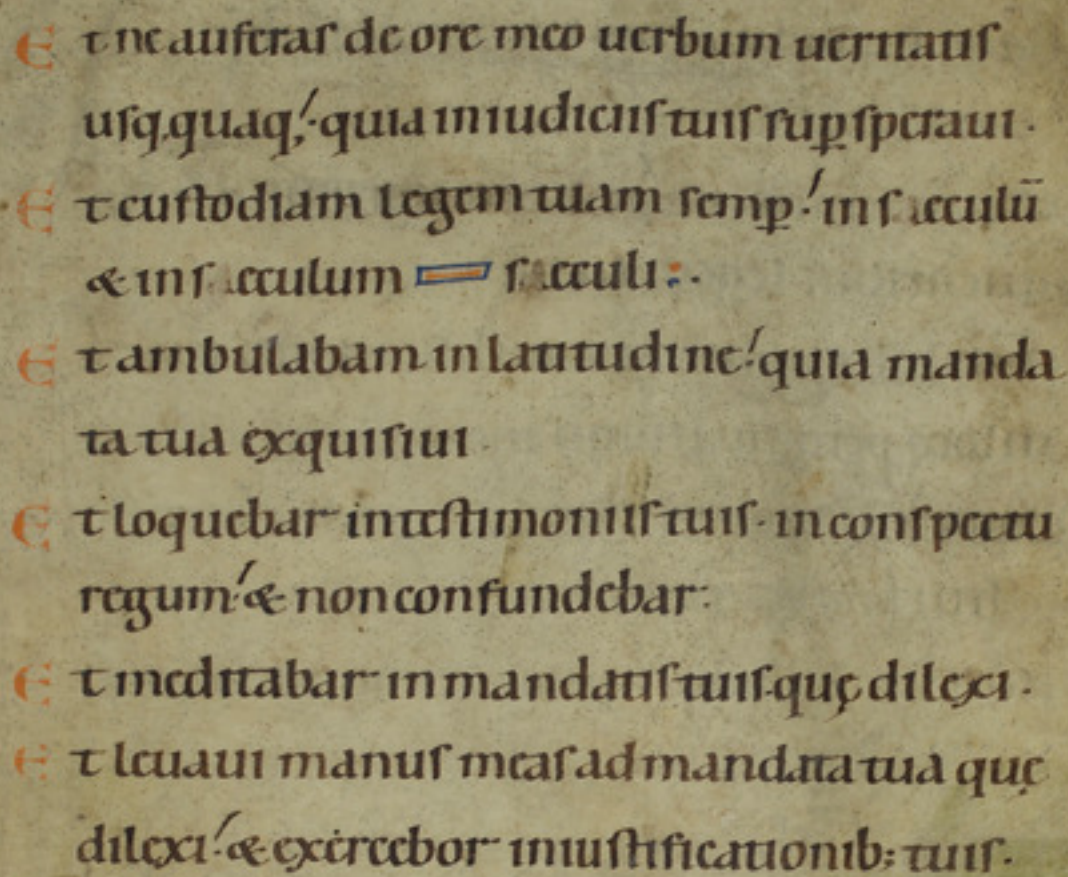 Et ne auferas de ore meo uerbum ueritatis
usq; quaq; quia in iudiciis tuis sup speraui.
Et custodiam legem tuam semp in saeculū
& in saeculum saeculi:.
Et ambulabam in latitudine quia manda
ta tua exquisiui.
Et loquebar in testimoniis tuis. in conspectu
regum & non confundebar:
Et meditabar in mandatis tuis. quę dilexi.
Et leuaui manus meas ad mandata tua quę
dilexi & exercebor in iustificationib; tuis.